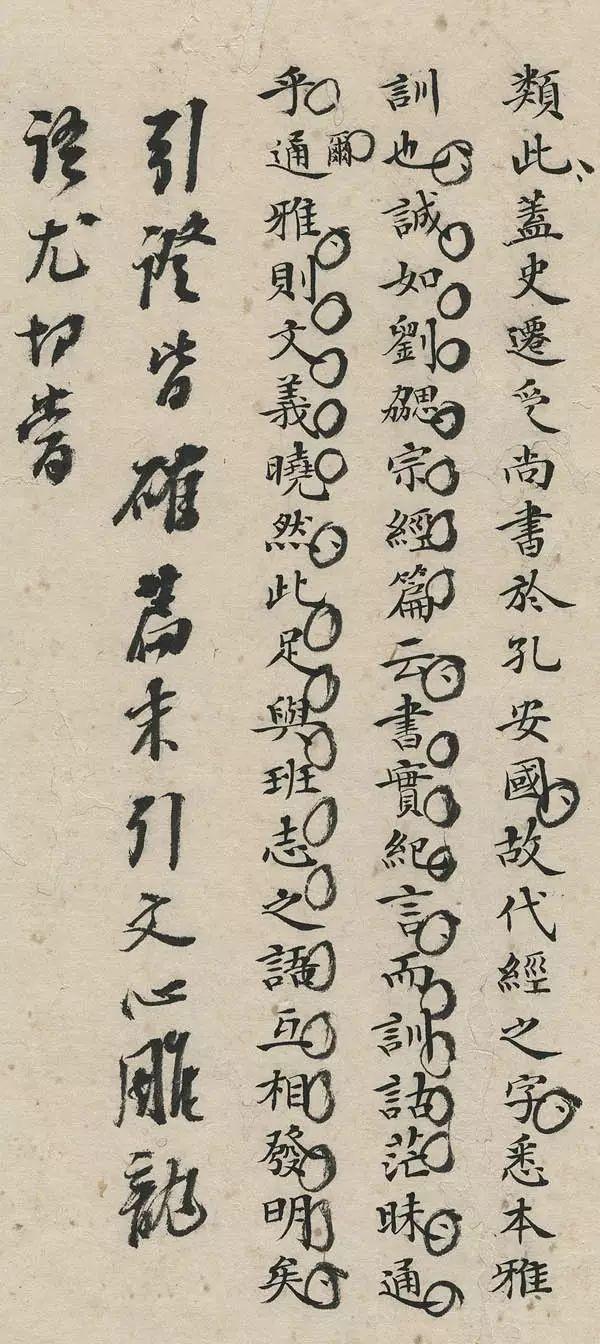 類此蓋史遷受尚書於孔安國故代經之字悉本雅
訓也誠如劉勰宗經篇云書實紀言而訓詁茫昧通
乎爾雅則文義曉然此足與班志之語互相發明矣
引證皆確篇末引文心雕龍
語尤切當